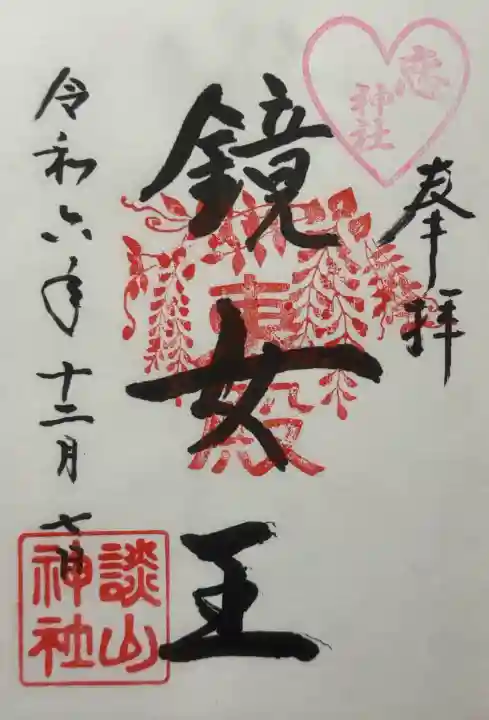 奉拝
恋
神社
鏡女王
東殿
令和六年十二月七日
談山
神社